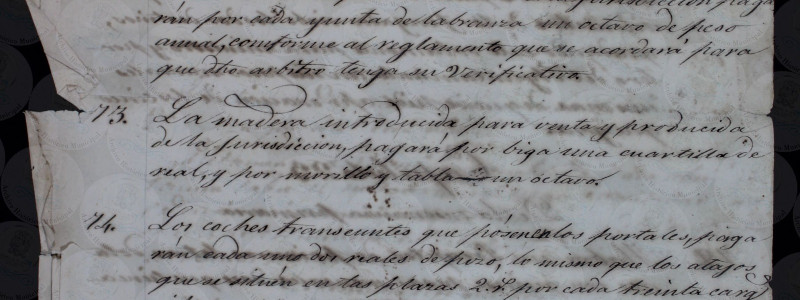 rán por cada yunta de labranza un octavo de peso
anual, comforme al reglamento que se acordará para
que dho arbitro tenga su Verificativo.
73. La madera introducida para venta y producida
de la Jurisdiccion, pagará por biga una cuartilla de
real, y por morillo y tabla un octavo.
74. Los coches transeuntes que pósen en los portales, paga
rán cada uno dos reales de pizo, lo mismo que los atajos
que se sitúen en las plazas 2 r. por cada treinta carg